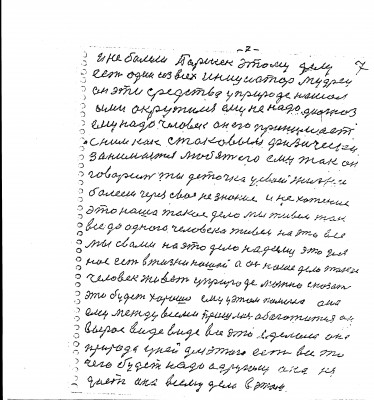 -2-
7
и не болеть Паршек этому делу
есть один со всех инициатор мудрец
он эти средства в природе нашол
ыми окружил ему не надо диагноз
ему надо человек он его принимает
с ним как с таковым физически
занимается любя того ему так он
говорит ти деточка у своей жизни
болееш через свое не знание и не хотение
это наша такое дело ми живем так
все до одного человека живем на это все
мы с вами на это дело надеемся это глав
ное есть в жизни нашей а он наше дело такое
человек живет у природе можно сказать
это будет хорошо ему у этом помогла она
ему между всеми пришлось
второе виде виде все это сделала она
природа у ней для этого есть все то
чего будет надо а другому она не
дает она всему дело в этом.